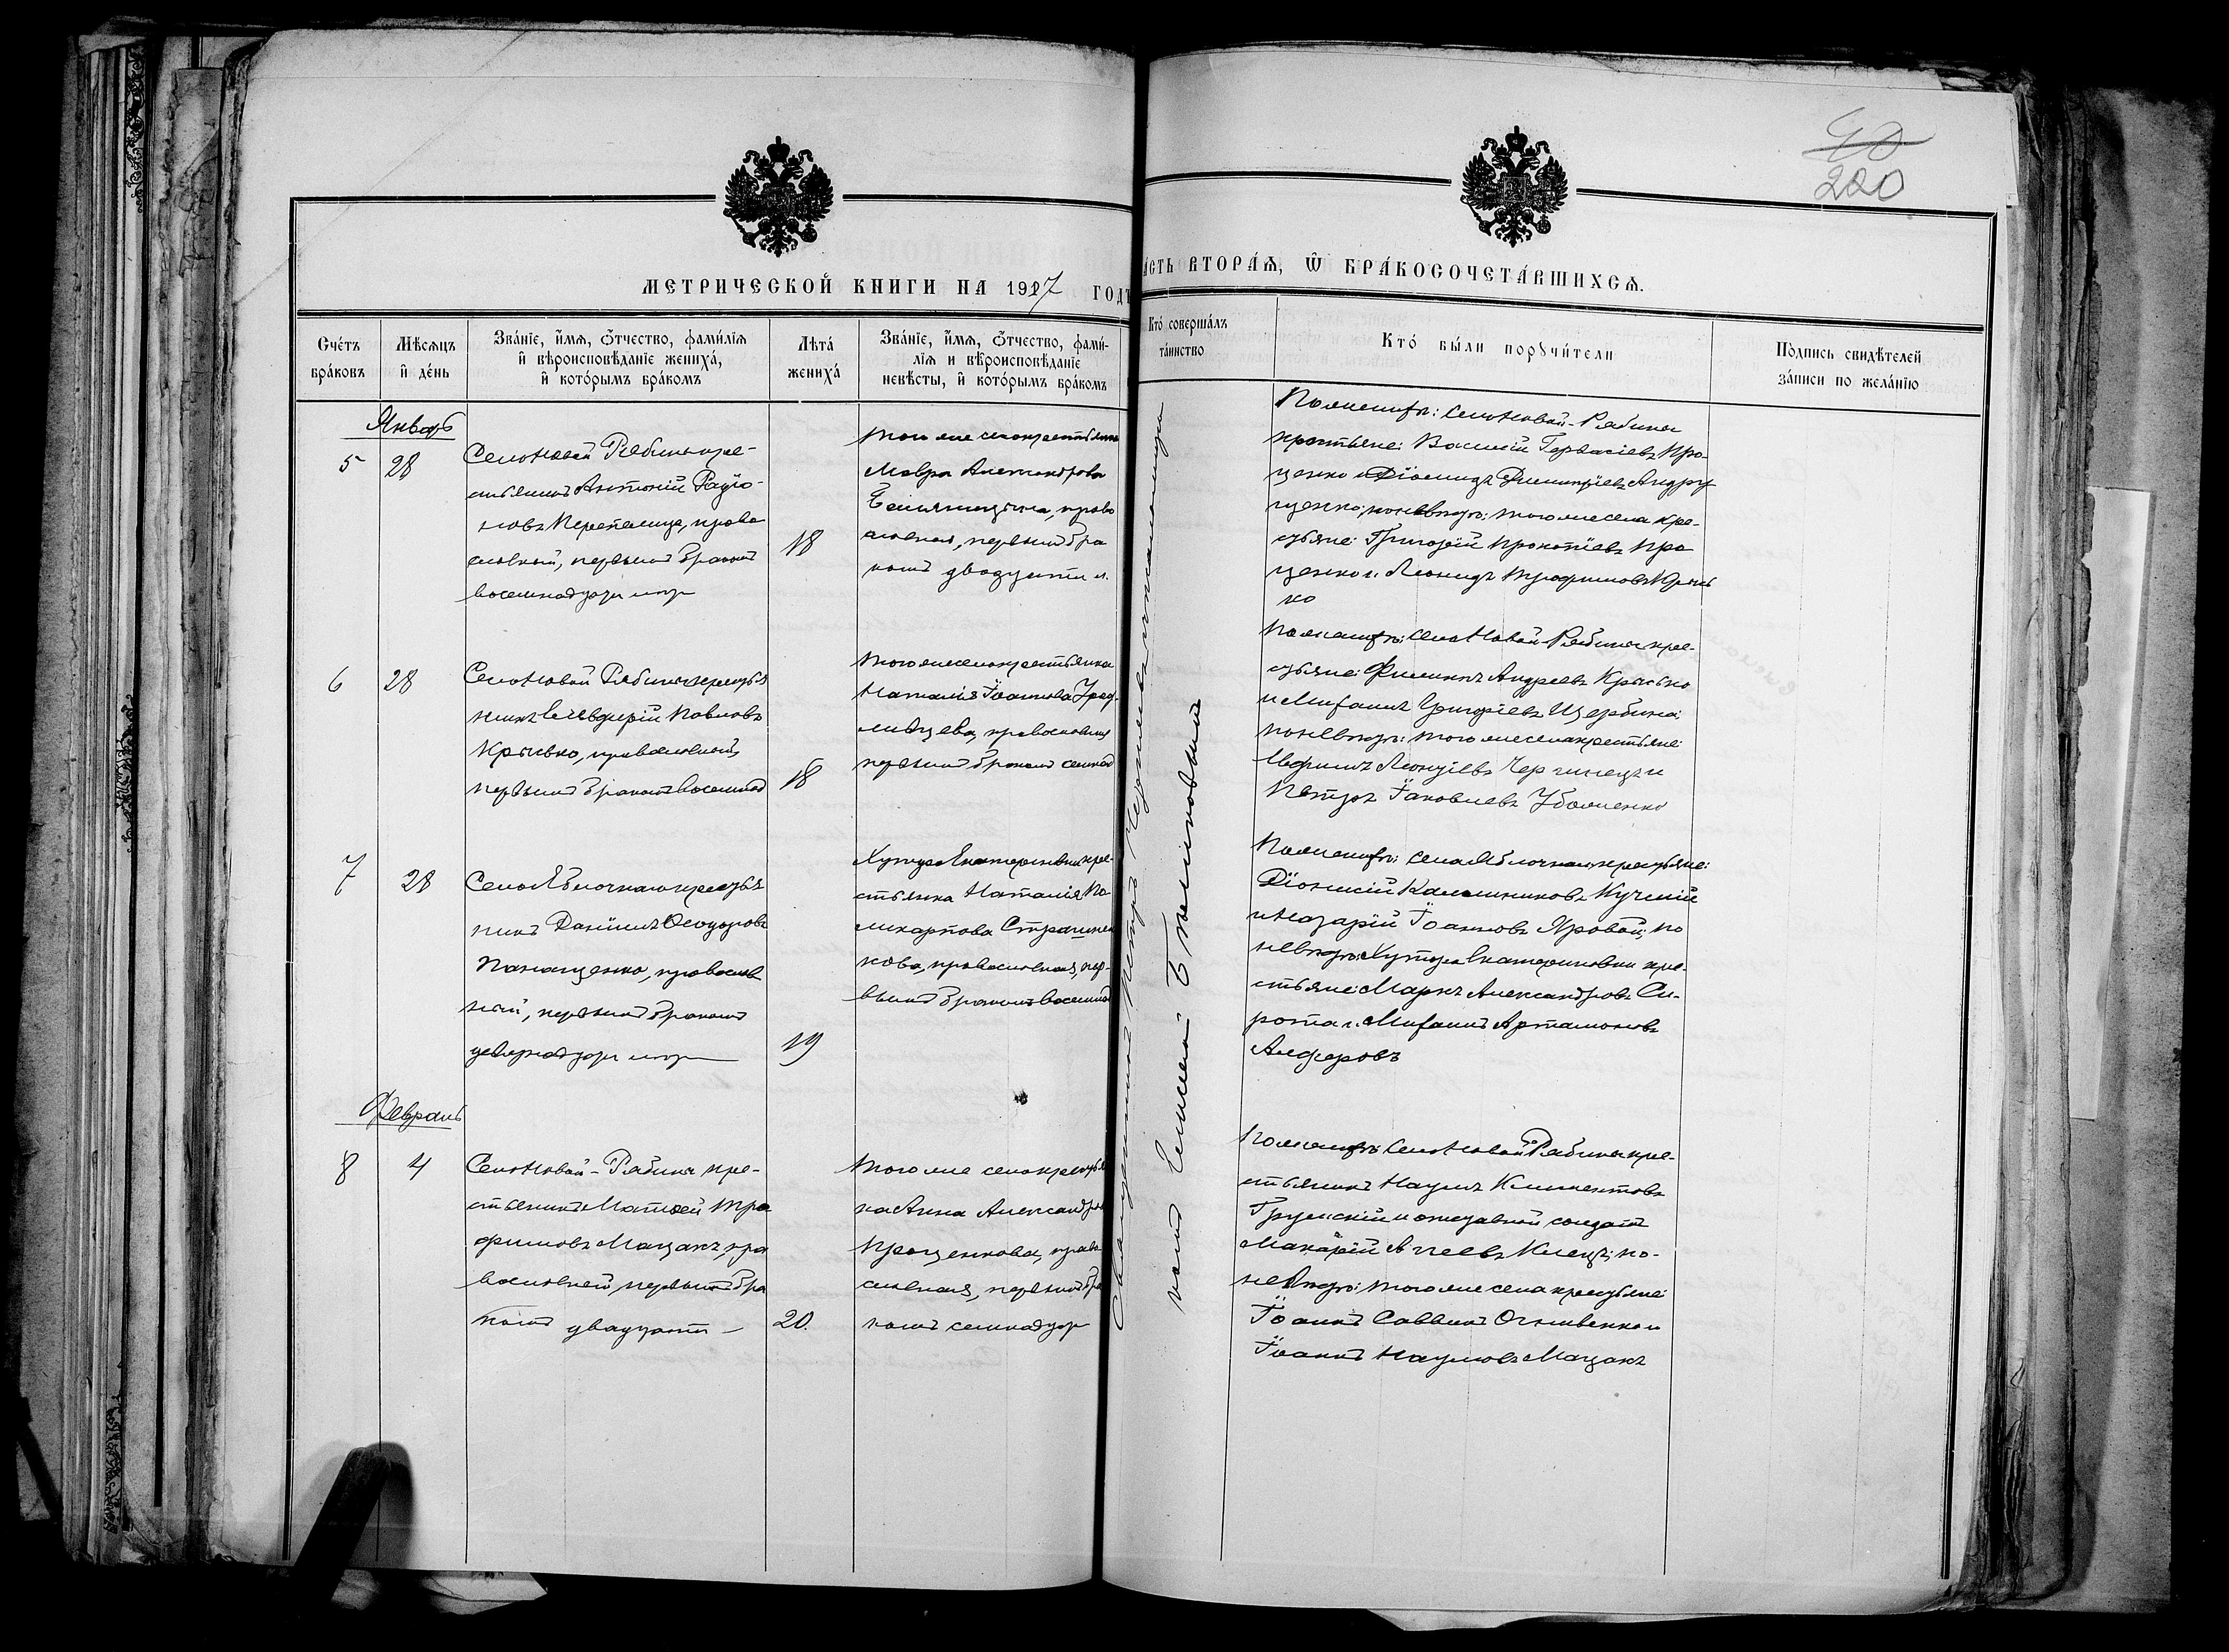 40
220
МЕТРИЧЕСКОЙ КНИГИ НА 1917 ГОДЪ
ЧАСТЬ ВТОРАЯ, Ѡ БРАКОСОЧЕТАВШИХСЯ.
Счетъ браковъ
Мѣсяцъ и день
Званіе, имя, отчество, фамилія
и вѣроисповѣданіе жениха,
и которымъ бракомъ
Лѣта жениха
Званіе, имя, отчество, фами-
лія и вѣроисповѣданіе
невѣсты, и которымъ бракомъ
Кто совершалъ таинство
Кто были поручители
Подпись свидѣтелей
записи по желанію
Январь
5
28
Села Новой Рябины кре-
стьянинъ Антоній Родіо-
новъ Перепелица, право
славный, первымъ бракомъ
восемнадцати лѣтъ
18
того же села крестьянка
Мавра Александрова
право
славная, первымъ бра
комъ двадцати л.
По женихѣ: села Новой-Рябины
крестьяне: Василій Гервасіевъ Про-
ценко и Діомидъ Димитріевъ Андру
щенко; по невѣстѣ: того же села кре-
стьяне: Григорій Прокопіевъ Про
ценко и Леонидъ Трофимовъ Крысь
ко
6
28
Села Новой Рябины крестья
нинъ Елевферій Павловъ
Крысько, православный,
первымъ бракомъ восемнад
18
того же села крестьянка
Наталія Іоаннова
православная
первымъ бракомъ семнад
По женихѣ: села Новой-Рябины кре-
стьяне: Филиппъ Андреевъ Крысько
и Михаилъ Григоріевъ Щербина;
по невѣстѣ: того же села крестьяне:
Ефимъ Леонтіевъ и
Петръ Іаковлевъ Убоженко
7
28
Села Яблочнаго крестья
нинъ Даніилъ Ѳеодоровъ
Панащенко, православ
ный, первымъ бракомъ
девятнадцати лѣтъ
19
Хутора Екатериновки кре-
стьянка Наталія По-
ликарпова
кова, православная, пер-
вымъ бракомъ восемнад
По женихѣ: села Яблочнаго крестьяне:
Діонисій Каллиниковъ Кучмій
и Назарій Іоанновъ Яровой; по
невѣстѣ: Хутора Екатериновки кре-
стьяне: Маркъ Александровъ Си-
рота и Михаилъ Артамоновъ
Алферовъ
Февраль
8
4
Села Новой-Рябины кре-
стьянинъ Матѳей Тро-
фимовъ Мацакъ, пра
вославный, первымъ бра
комъ двадцати
20.
того же села крестьян
ка Анна Александров
Проценкова, право
славная, первымъ бра
комъ семнадцат
По женихѣ: села Новой Рябины кре-
стьянинъ Наумъ Климентовъ
Грунскій и отставной солдатъ
Макарій по-
невѣстѣ: того же села крестьяне:
Іоаннъ Саввинъ Огнивенко и
Іоаннъ Наумовъ Мацакъ
Священникъ Петръ Чернявскій съ псаломщи
комъ Елисеемъ